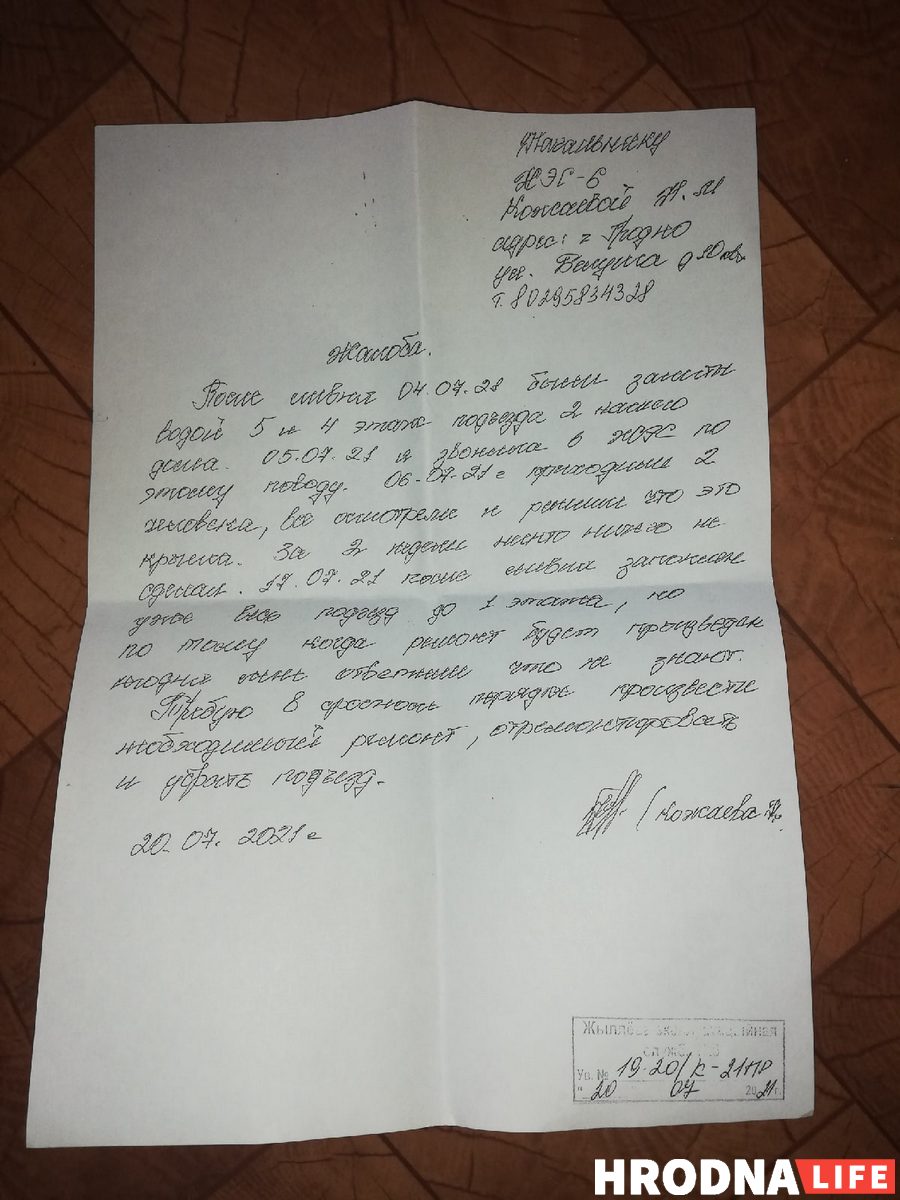 Начальнику
ЖЭС-6
Кожаевой Н.М
адрес: г Гродно
ул. д 10 кв
т. 80295834328
Жалоба.
После ливня 04.07.21 были залиты
водой 5 и 4 этаж подъезда 2 нашего
дома. 05.07.21 я звонила в ЖЭС по
этому поводу. 06.07.21 г приходили 2
человека, все осмотрели и решили что это
крыша. За 2 недели никто ничего не
сделал. 17.07.21 после ливня заложен
уже весь подъезд до 1 этажа, но
по тому когда ремонт будет произведен
мне ответили что не знают.
Требую в срочном порядке произвести
необходимый ремонт, отремонтировать
и убрать подъезд.
(Кожаева
20.07.2021 г
Жыллёва
Ув. № 19-20/К-21ПР
"20 07 2021 г.
HRODNA LIFE